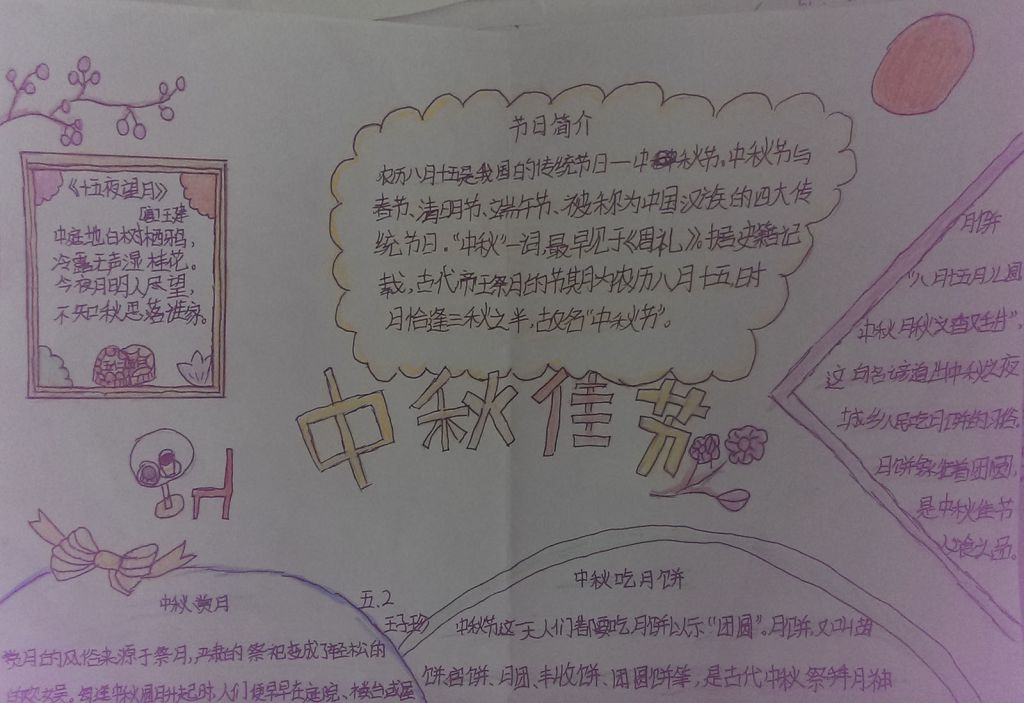 《十五夜望月》
[唐]王建
中庭地白树栖鸦，
冷露无声湿桂花。
今夜月明人尽望，
不知秋思落谁家。
节日简介
农历八月十五是我国的传统节日一中秋节。中秋节与
春节、清明节、端午节、被称为中国汉族的四大传
统节日。“中秋”一词，最早见于《周礼》。据史籍记
载，古代帝王祭月的节期为农历八月十五，时
月恰逢三秋之半，故名“中秋节”。
中秋佳节
月饼
“八月十五月儿圆
中秋月饼又香又甜”，
这句名谚道出中秋之夜
城乡人民吃月饼的习俗。
月饼象征着团圆，
是中秋佳节
五.2
中秋赏月
赏月的风俗来源于祭月，严肃的祭祀变成了轻松的
欢娱。每逢中秋圆月升起时，人们便早早在庭院、楼台或屋
中秋吃月饼
中秋节这一天人们都要吃月饼以示“团圆”。月饼，又叫胡
饼、宫饼、月团、丰收饼、团圆饼等，是古代中秋祭拜月神